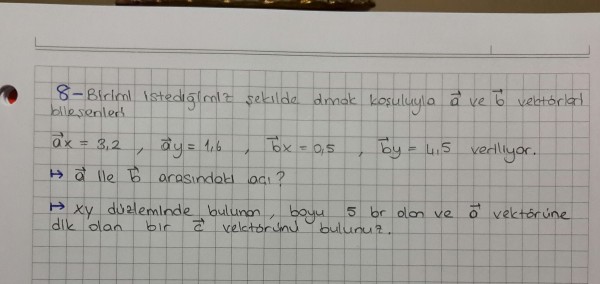 8- Birimi istediğimiz şekilde almak koşuluyla a⃗ ve b⃗ vektörleri
bileşenleri
a⃗x = 3,2 , a⃗y = 1,6 , b⃗x = 0,5 , b⃗y = 4,5 veriliyor.
↦ a⃗ ile b⃗ arasındaki açı?
↦ xy düzleminde bulunan, boyu 5 br olan ve a⃗ vektörüne
dik olan bir c⃗ vektörünü bulunuz.